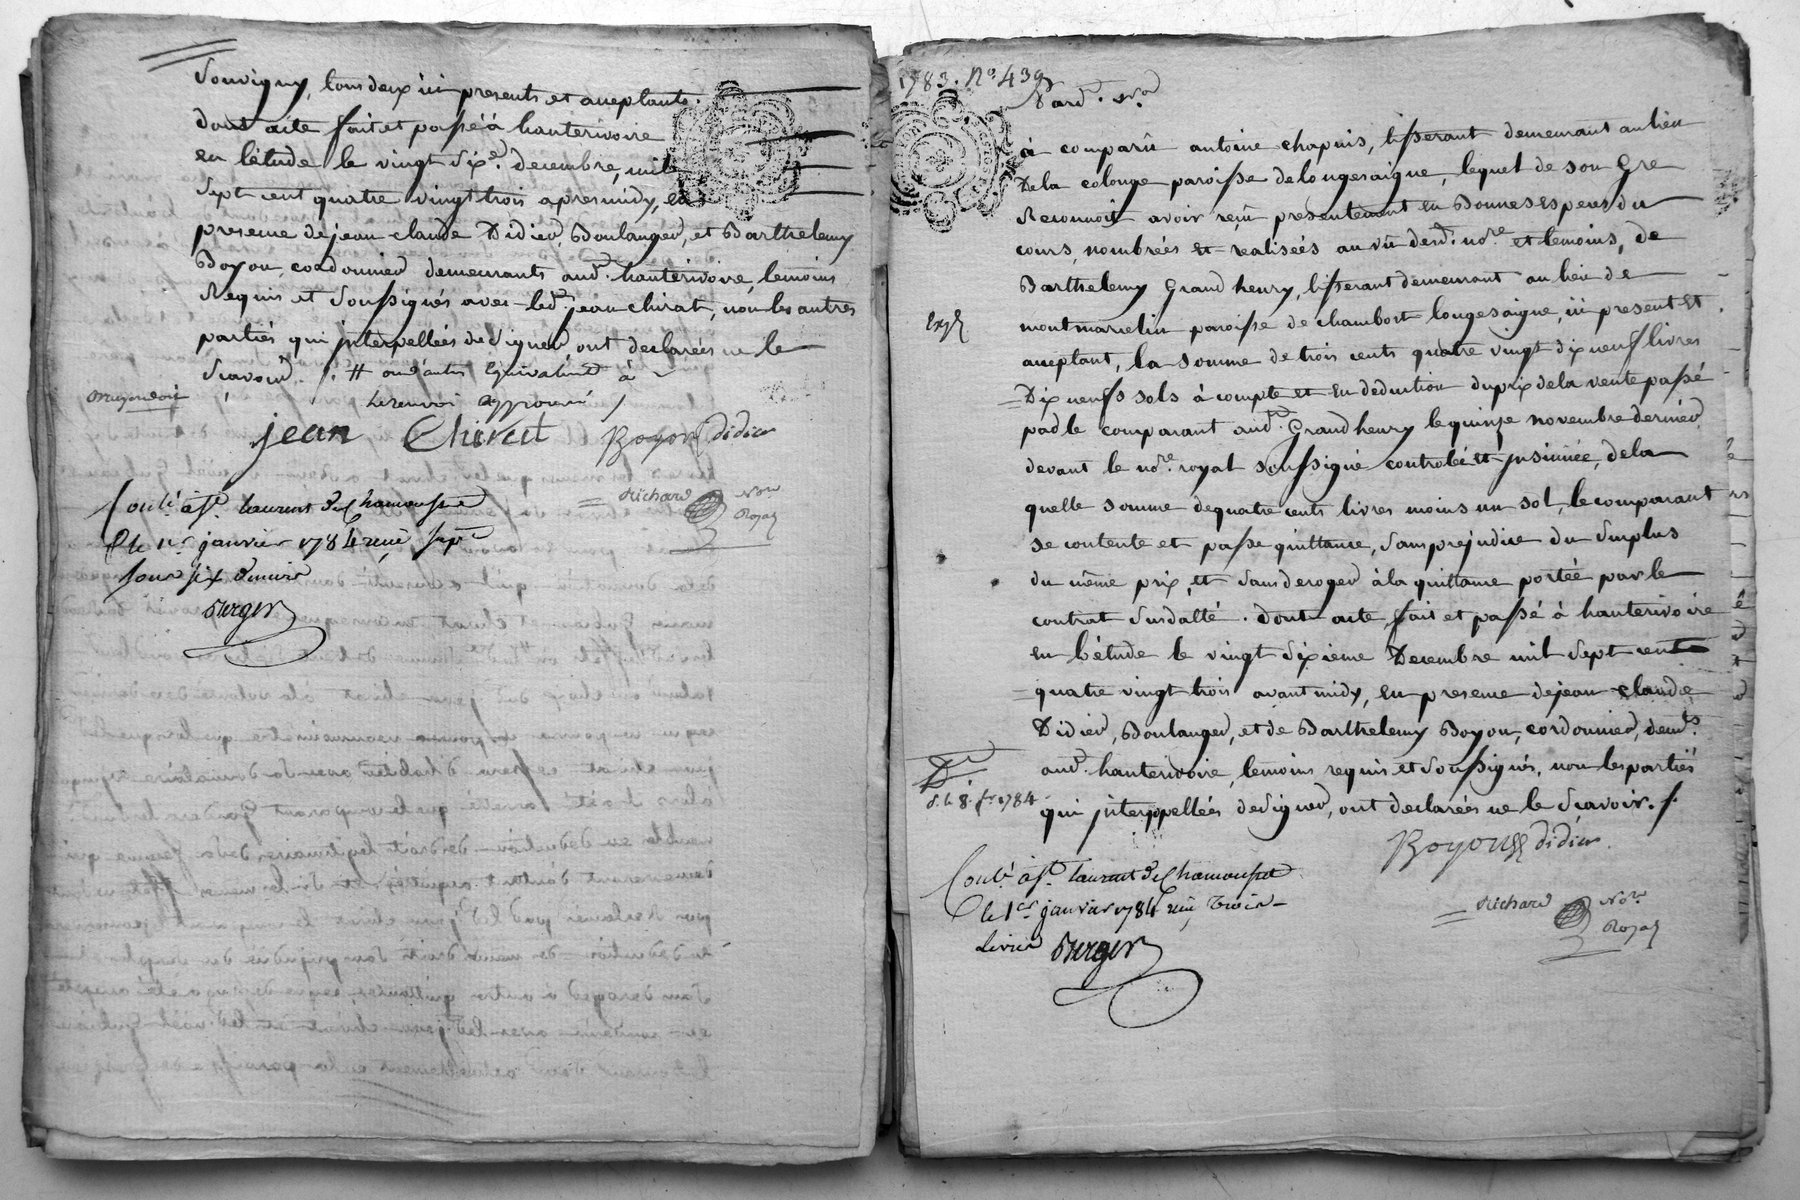 Souvigny, tous deux ici presents et acceptants.
dont acte fait et passé à hauterivoire
en l'étude le vingt six.e decembre, mil
sept cent quatre vingt trois apres midy, en
presence de jean claude Didier, Boulanger, et Barthelemy
Boyon, cordonnier demeurants aud. hauterivoire, temoins
Requis et soussignés avec led. jean chirat, non les autres
parties qui interpellées de signer ont declarées ne le
scavoir. /. # ou d'autres Equivalents à
le renvoi approuvé /
jean Chirat Boyon didier
Richard No.re
Royal
Con.lé à St. Laurent de Chamousset
le 1er janvier 1784 reçu
sous six deniers
Berger
1783. No. 439
Pard.t No.re
à comparû antoine chapuis, tisserant demeurant au lieu
De la colonge paroisse de longesaigne, lequel de son Gre
Reconnoit avoir reçû presentement en Bonnes especes du
cours, nombrées et realisées au vû desd. no.re et temoins, de
Barthelemy Grand henry, tisserant demeurant au lieu de
montmarcelin paroisse de chambost longesaigne, ici present et
acceptant, la somme de trois cents quatre vingt dix neuf livres
= Dix neufs sols à compte et en deduction du prix de la vente passé
par le comparant aud. Grand henry le quinze novembre dernier
devant le no.re royal soussigné controlée et insinuée, de la
quelle somme de quatre cents livres moins un sol, le comparant
se contente et passe quittance, sans prejudice du surplus
du même prix, et sans deroger à la quittance portée par le
contrat susdatté. dont acte, fait et passé à hauterivoire
en l'étude le vingt sixieme Decembre mil sept cent
= quatre vingt trois avant midy, en presence de jean claude
Didier, Boulanger, et de Barthelemy Boyon, cordonnier, dem.ts
aud. hauterivoire, temoins requis et soussignés, non les parties
qui interppellées de signer, ont declarées ne le scavoir. /.
Boyon didier
Richard No.re
Royal
Con.lé à St. Laurent de Chamousset
le 1er janvier 1784 reçû Trois
Livres Berger